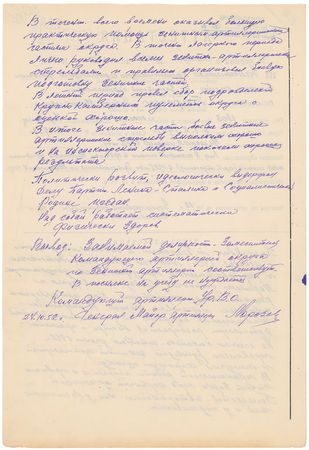 В течении всего времени оказывал большую
практическую помощь зенитным артиллерийским
частям округа. В течении лагерного периода
лично руководил всеми зенитно-артиллерийскими
стрельбами и правильно организовал боевую
подготовку зенитных частей.
В летний период провел сбор
округа с
оценкой хорошо.
В итоге зенитные части
артиллерийские стрельбы выполнили хорошо
и на инспекторской поверке показали хорошие
результаты.
Политически развит, идеологически выдержан
делу партии Ленина-Сталина и Социалистической
Родине предан.
Над собой работает систематически
Физически здоров
Вывод: Занимаемой должности - Заместителя
Командующего артиллерией округа
по зенитной артиллерии соответствует.
В посылке на учебу не нуждается
Командующий артиллерией Ур.В.О.
24.10.52г. Генерал Майор артиллерии